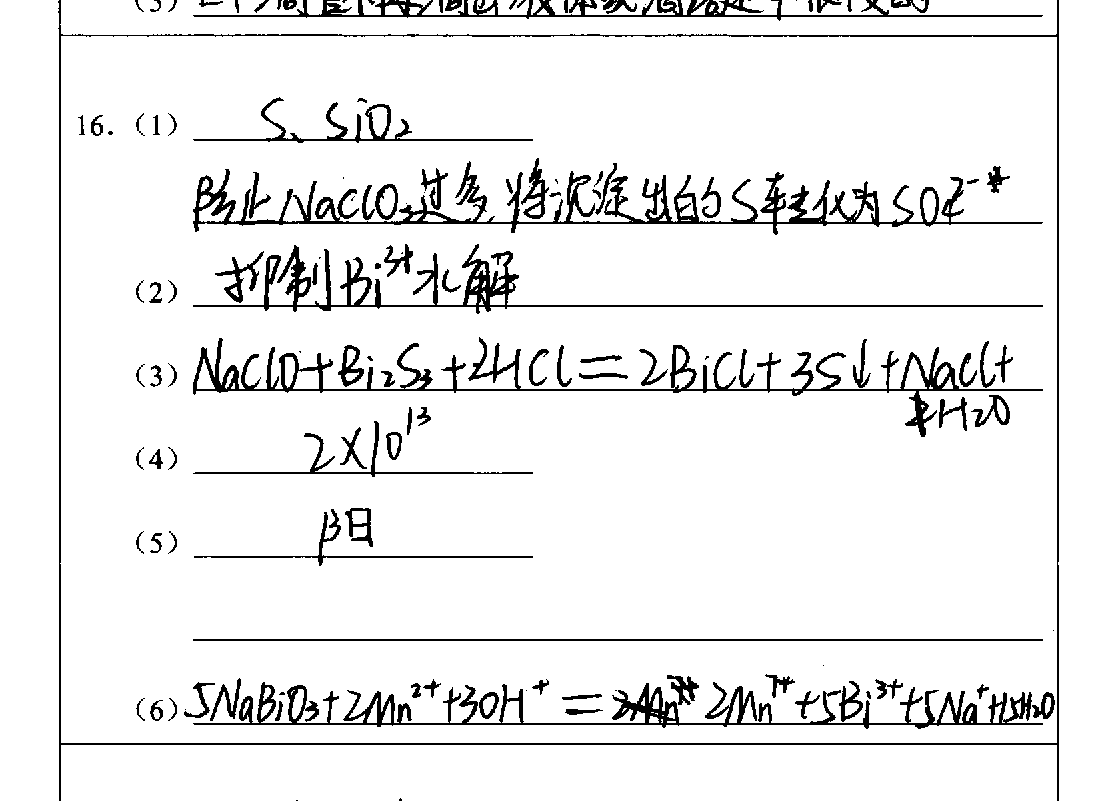 16. (1) S、SiO₂
防止NaClO₃过多,将沉淀出的S转化为SO₄²⁻
(2) 抑制Bi³⁺水解
(3) NaClO+Bi₂S₃+2HCl=2BiCl+3S↓+NaCl+
H₂O
(4) 2×10¹³
(5) 阳
(6) 5NaBiO₃+2Mn²⁺+30H⁺= 2Mn⁷⁺+5Bi³⁺+5Na⁺+15H₂O